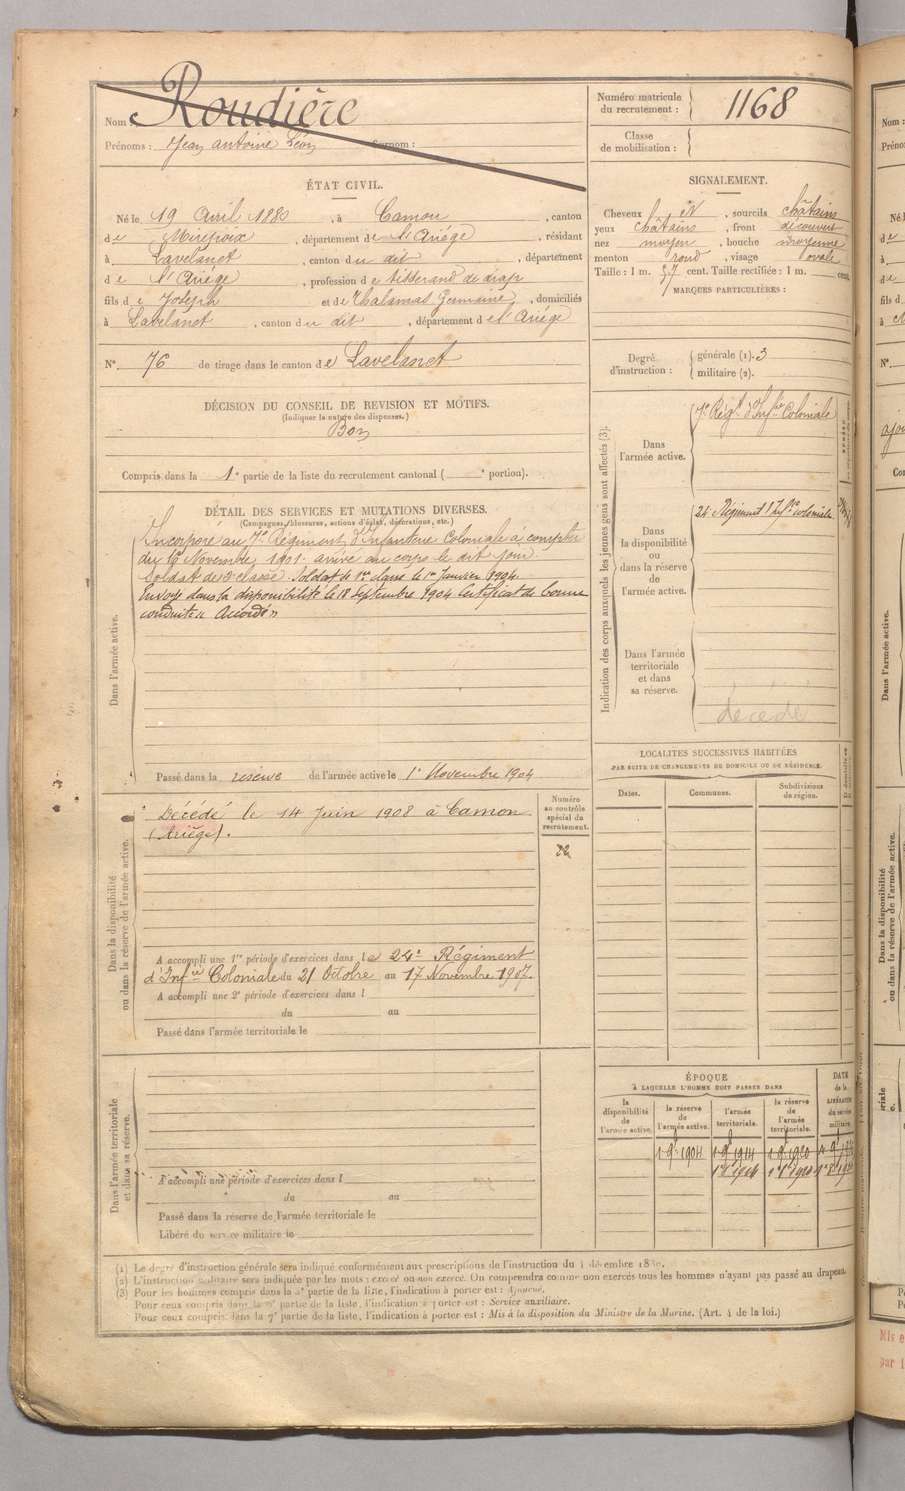 Nom : Roudière
Prénoms : Jean Antoine Léon Surnom :
Numéro matricule du recrutement : 1168
Classe de mobilisation :
ÉTAT CIVIL.
Né le 19 Avril 1880, à Camon, canton
de Mirepoix, département de l'Ariége, résidant
à Lavelanet, canton du dit, département
de l'Ariége, profession de tisserand de drap
fils de Joseph et de Thalamas Germaine, domiciliés
à Lavelanet, canton du dit, département de l'Ariége
N° 76 de tirage dans le canton de Lavelanet
SIGNALEMENT.
Cheveux N, sourcils châtains
yeux châtains, front découvert
nez moyen, bouche moyenne
menton rond, visage ovale
Taille : 1 m. 57 cent. Taille rectifiée : 1 m. cent.
MARQUES PARTICULIÈRES :
Degré d'instruction : générale (1). 3
militaire (2).
DÉCISION DU CONSEIL DE REVISION ET MOTIFS.
(Indiquer la nature des dispenses.)
Bon
Compris dans la 1e partie de la liste du recrutement cantonal ( e portion).
DÉTAIL DES SERVICES ET MUTATIONS DIVERSES.
(Campagnes, blessures, actions d'éclat, décorations, etc.)
Dans l'armée active.
Incorporé au 7e Régiment d'Infanterie Coloniale à compter
du 16 Novembre 1901. arrivé au corps le dit jour
Soldat de 2e classe. Soldat de 1re classe le 1er Janvier 1904.
Envoyé dans la disponibilité le 18 Septembre 1904. Certificat de bonne
conduite « Accordé »
Passé dans la réserve de l'armée active le 1er Novembre 1904
Indication des corps auxquels les jeunes gens sont affectés (3).
Dans l'armée active.
7e Régt d'Infie Coloniale
Dans la disponibilité ou dans la réserve de l'armée active.
24e Régiment d'Infie coloniale
Dans l'armée territoriale et dans sa réserve.
décédé
Dans la disponibilité ou dans la réserve de l'armée active.
Décédé le 14 Juin 1908 à Camon
(Ariège).
Numéro au contrôle spécial du recrutement.
A accompli une 1re période d'exercices dans le 24e Régiment
d'Infie Coloniale du 21 Octobre au 17 Novembre 1907.
A accompli une 2e période d'exercices dans l
du au
Passé dans l'armée territoriale le
LOCALITÉS SUCCESSIVES HABITÉES
PAR SUITE DE CHANGEMENTS DE DOMICILE OU DE RÉSIDENCE.
Dates. Communes. Subdivisions de région.
Dans l'armée territoriale et dans sa réserve.
A accompli une période d'exercices dans l
du au
Passé dans la réserve de l'armée territoriale le
Libéré du service militaire le
ÉPOQUE
À LAQUELLE L'HOMME DOIT PASSER DANS
la disponibilité de l'armée active.
la réserve de l'armée active.
l'armée territoriale.
la réserve de l'armée territoriale.
DATE de la LIBÉRATION du service militaire.
(1) Le degré d'instruction générale sera indiqué conformément aux prescriptions de l'instruction du
(2) L'instruction militaire sera indiquée par les mots : exercé ou non exercé. On comprendra comme non exercés tous les hommes n'ayant pas passé au drapeau.
(3) Pour les hommes compris dans la partie de la liste, l'indication à porter est : Ajourné.
Pour ceux compris dans la partie de la liste, l'indication à porter est : Service auxiliaire.
Pour ceux compris dans la 7e partie de la liste, l'indication à porter est : Mis à la disposition du Ministre de la Marine. (Art. 4 de la loi.)